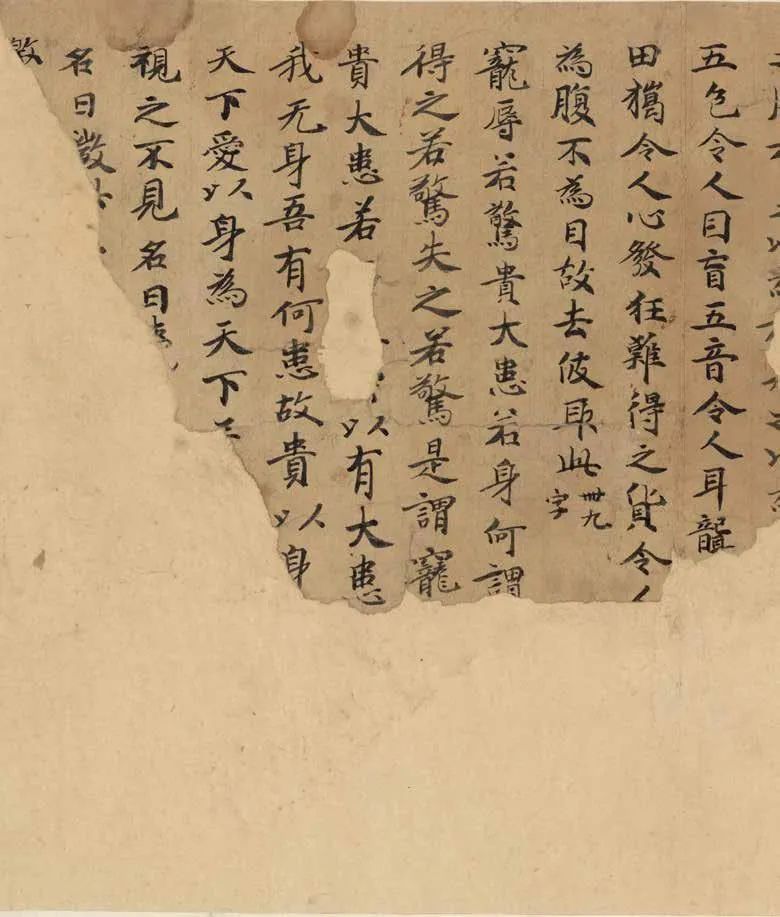 五色令人目盲五音令人耳聾
田獦令人心發狂難得之貨令人
為腹不為目故去彼取此卅九字
寵辱若驚貴大患若身何謂
得之若驚失之若驚是謂寵
貴大患若以有大患
我无身吾有何患故貴以身
天下愛以身為天下
視之不見名曰
名曰微